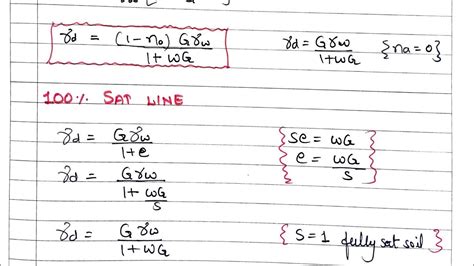 γd = (1-na) Gγw / 1+wG    γd = Gγw / 1+wG    {na=0}
100% SAT LINE
γd = Gγw / 1+e    {Se = wG
γd = Gγw / 1+ wG/S    e = wG/S}
γd = Gγw / 1+wG    {S=1 fully sat soil}